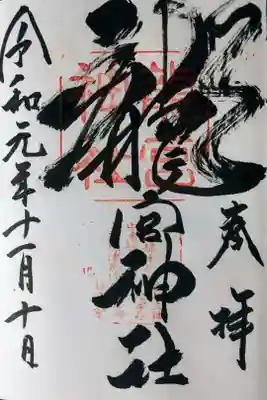 奉拝
龍宮神社
令和元年十一月十日